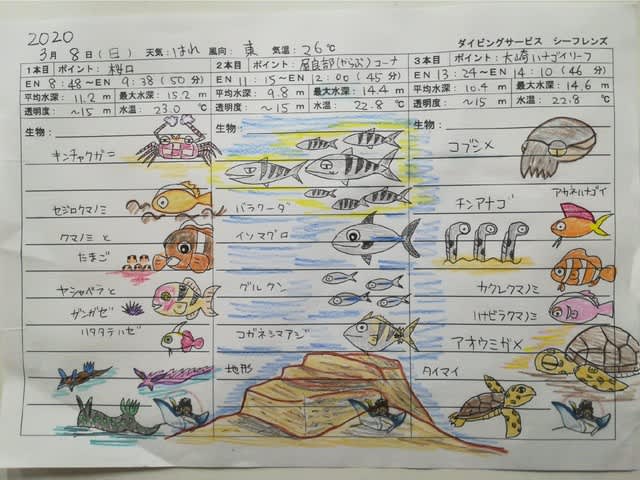 2020
3月 8日(日) 天気:はれ 風向:東 気温:26℃ ダイビングサービス シーフレンズ
1本目 ポイント:桜口
EN 8:48〜EN 9:38(50分)
平均水深:11.2 m 最大水深:15.2 m
透明度:〜15 m 水温:23.0 ℃
生物:
キンチャクガニ
セジロクマノミ
クマノミと
たまご
ヤシャベラと
ガンガゼ
ハタタテハゼ
2本目 ポイント:屋良部(やらぶ)コーナ
EN 11:15〜EN 12:00(45分)
平均水深:9.8 m 最大水深:14.4 m
透明度:〜15 m 水温:22.8 ℃
生物:
バラクーダ
イソマグロ
グルクン
コガネシマアジ
地形
3本目 ポイント:大崎ハナゴイリーフ
EN 13:24〜EN 14:10(46分)
平均水深:10.4 m 最大水深:14.6 m
透明度:〜15 m 水温:22.8 ℃
生物:
コブシメ
アカネハナゴイ
チンアナゴ
カクレクマノミ
ハナビラクマノミ
アオウミガメ
タイマイ